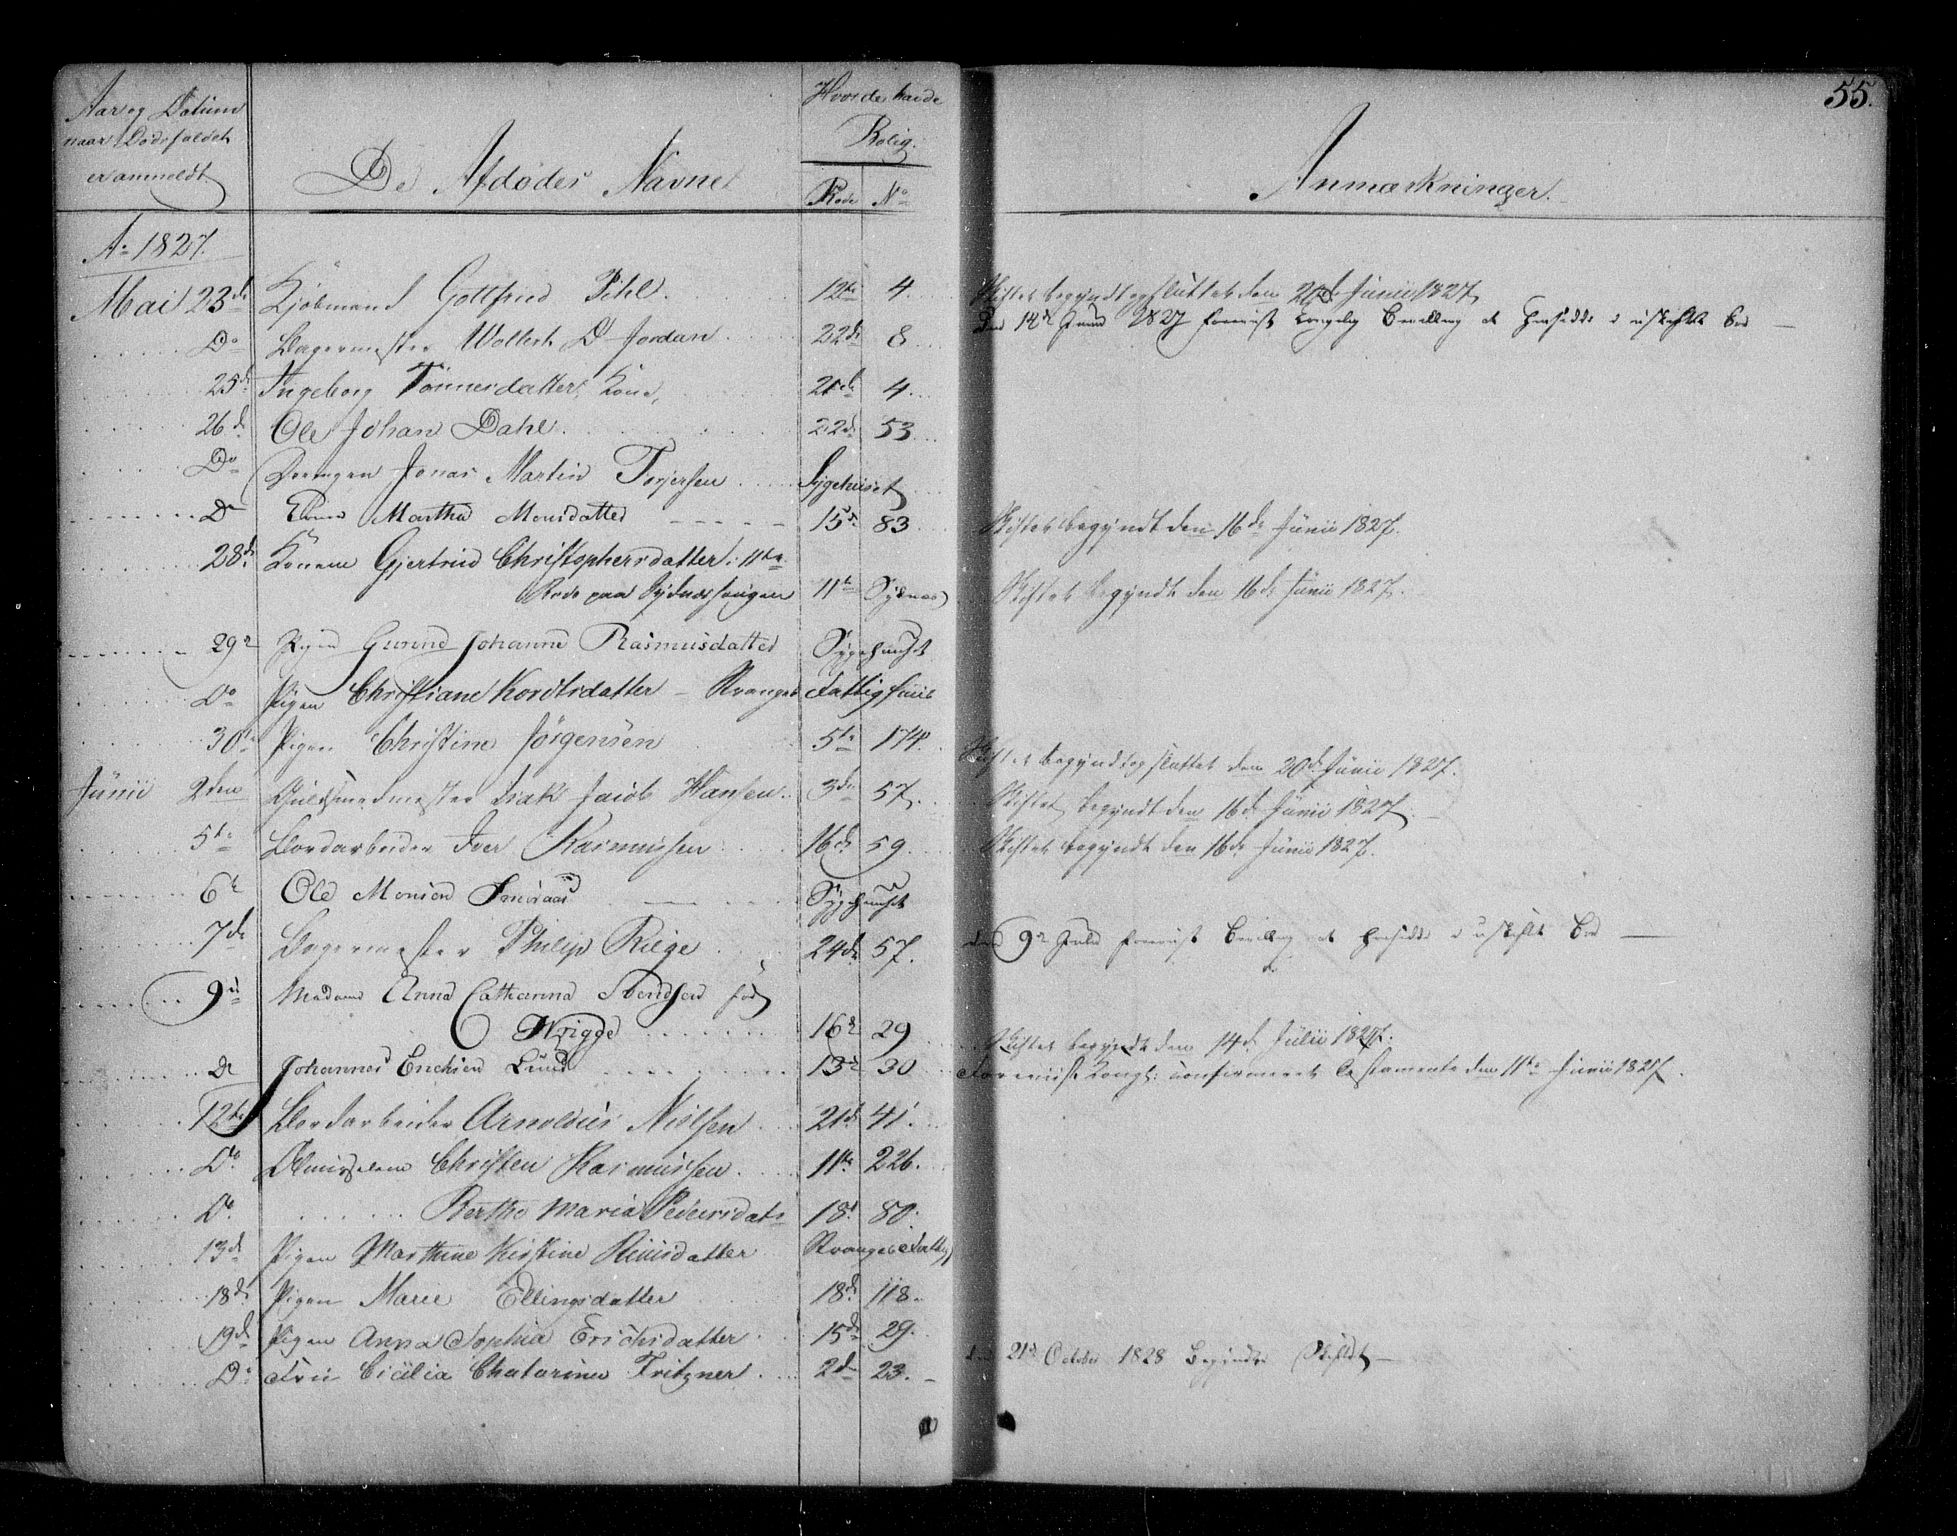 55.
Aar og Datum
naar Dødsfaldet
er anmeldt.
De Afdødes Navne
Hvor de havde
Bolig.
Rode No
Anmærkninger.
Ao 1827.
Mai 23de Kjöbmand Gottfried Pihl. 12te 4. Skiftet begyndt og sluttet den 20de Junii 1827
Do Bagermester Wollert D Jordan 22de 8 Den 12te 1827 Bevilling at hensidde i uskiftet Boe
25de Ingeborg Tönnesdatter, Kone, 21de 4.
26de Ole Johan Dahl. 22de 53
Do Drengen Jonas Martin Torjersen Sygehuuset
Do Martha Monsdatter 15de 83 Skiftet begyndt den 16de Junii 1827.
28de Konen Gjertrud Christophersdatter i 11te
Rode paa Sydnæshaugen 11te Sydnæs Skiftet begyndt den 16de Junii 1827.
29de Pigen Gurine Johanne Rasmusdatter Sygehuuset
Do Pigen Christiane Kordtsdatter – Stranges Fattighuus
30te Pigen Christine Jörgensen 5te 174. Skiftet begyndt og sluttet den 20de Junii 1827.
Junii 2den Guldsmedmester Isak Jacob Hansen 3de 57. Skiftet begyndt den 16de Junii 1827.
5te Bordarbeider Iver Rasmussen 16de 59. Skiftet begyndt den 16de Junii 1827.
6te Ole Monsen Smøraas Sygehuuset
7de Bagermester Philip Riege 24de 57. den 9de Bevilling at hensidde i uskiftet Boe
9de Madame Anna Catharina Svendsen fød
Wrigge 16de 29 Skiftet begyndt den 14de Julii 1827.
Do Johannes Erichsen Lund 13de 30 Foreviist Kongl: confirmeret Testamente den 11te Junii 1827.
12te Bordarbeider Arnoldus Nielsen 21de 41.
Do Almisselem Christen Rasmussen 11te 226.
Do Berthe Maria Pedersdatr 18de 80.
13de Pigen Marthine Kirstine Riusdatter Stranges Fattigh
18de Pigen Marie Ellingsdatter 18de 118.
19de Pigen Anna Sophia Erichsdatter 15de 29.
Do Frue Cicilia Chatarina Fritzner 2den 23. den 21de October 1828 begyndte Skiftet